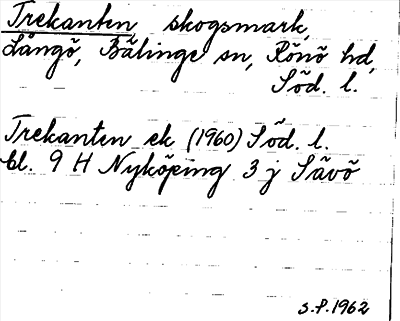 Trekanten, skogsmark,
Långö, Bälinge sn, Rönö hd,
Söd. l.
Trekanten ek (1960) Söd. l.
bl. 9 H Nyköping 3 j Sävö
S.P. 1962